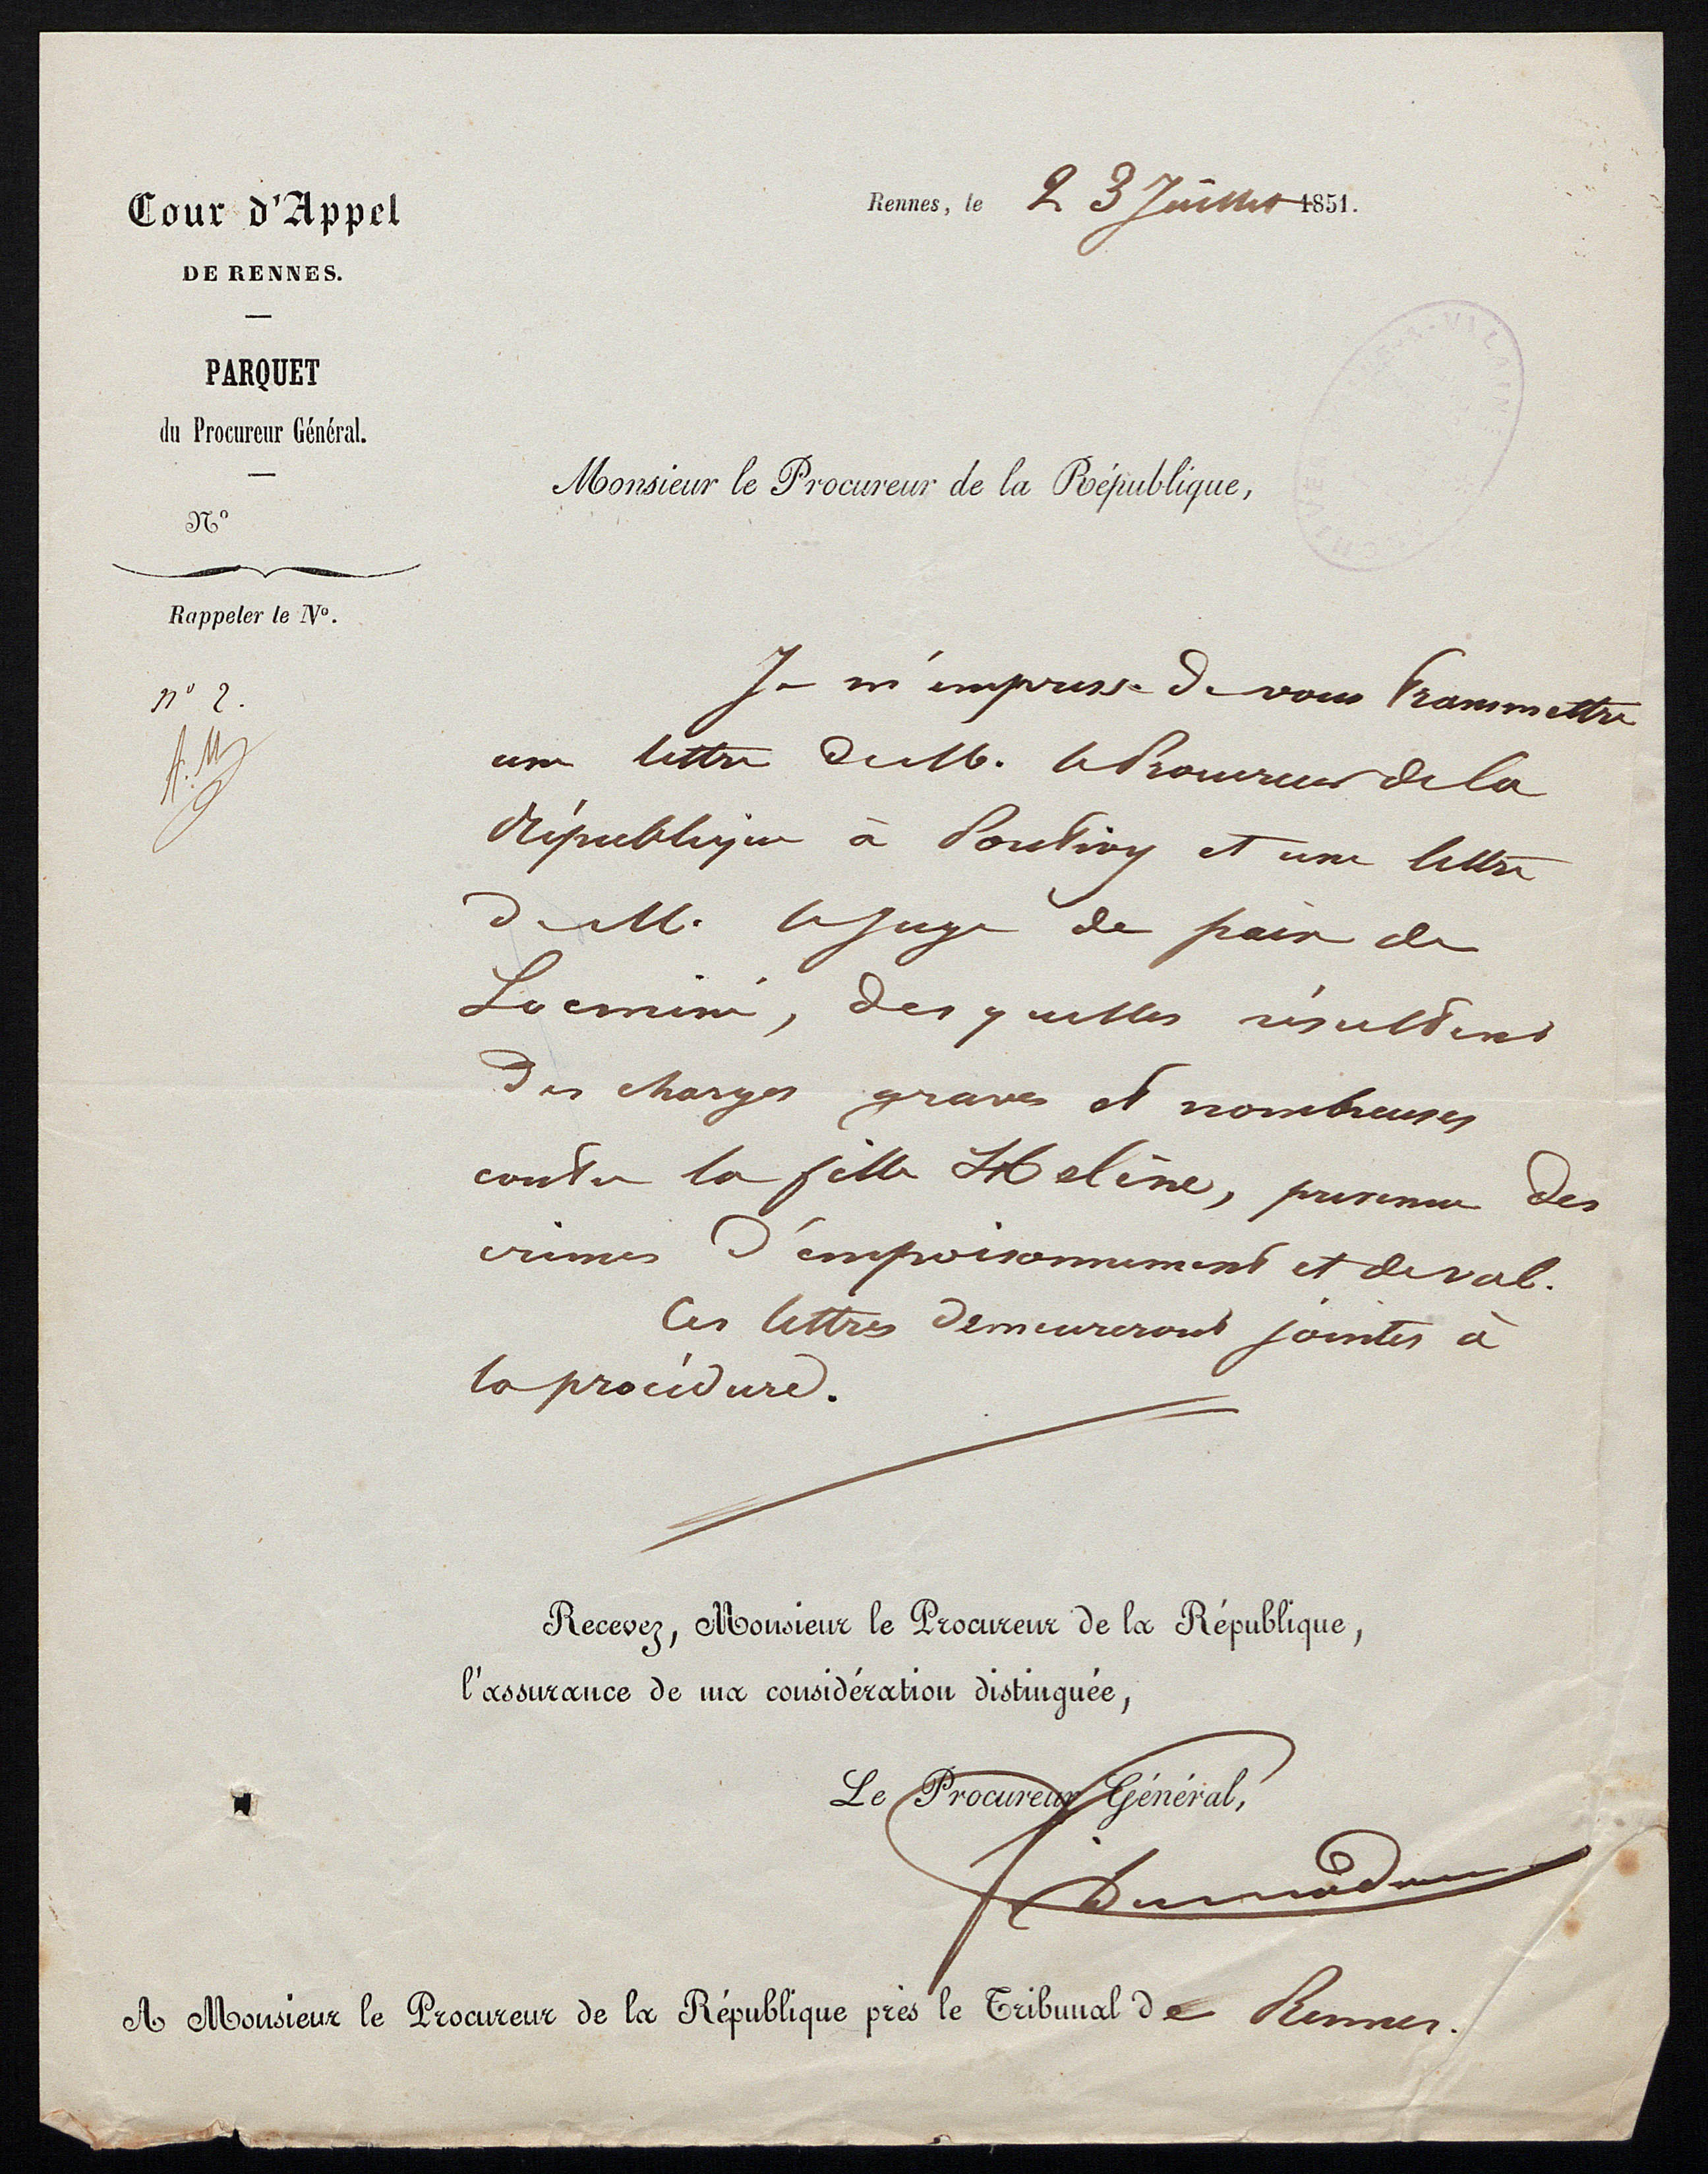 Cour d'Appel
DE RENNES.
PARQUET
du Procureur Général.
N°
Rappeler le N°.
n° 2.
A. M
Rennes, le 23 Juillet 1851.
Monsieur le Procureur de la République,
Je m'empresse de vous transmettre
une lettre de M. le Procureur de la
République à Pontivy et une lettre
de M. le Juge de paix de
Locminé, desquelles résultent
des charges graves et nombreuses
contre la fille Hélène, prévenue des
crimes d'empoisonnement et de vol.
Ces lettres demeureront jointes à
la procédure.
Recevez, Monsieur le Procureur de la République,
l'assurance de ma considération distinguée,
Le Procureur Général,
A Monsieur le Procureur de la République près le Tribunal de Rennes.